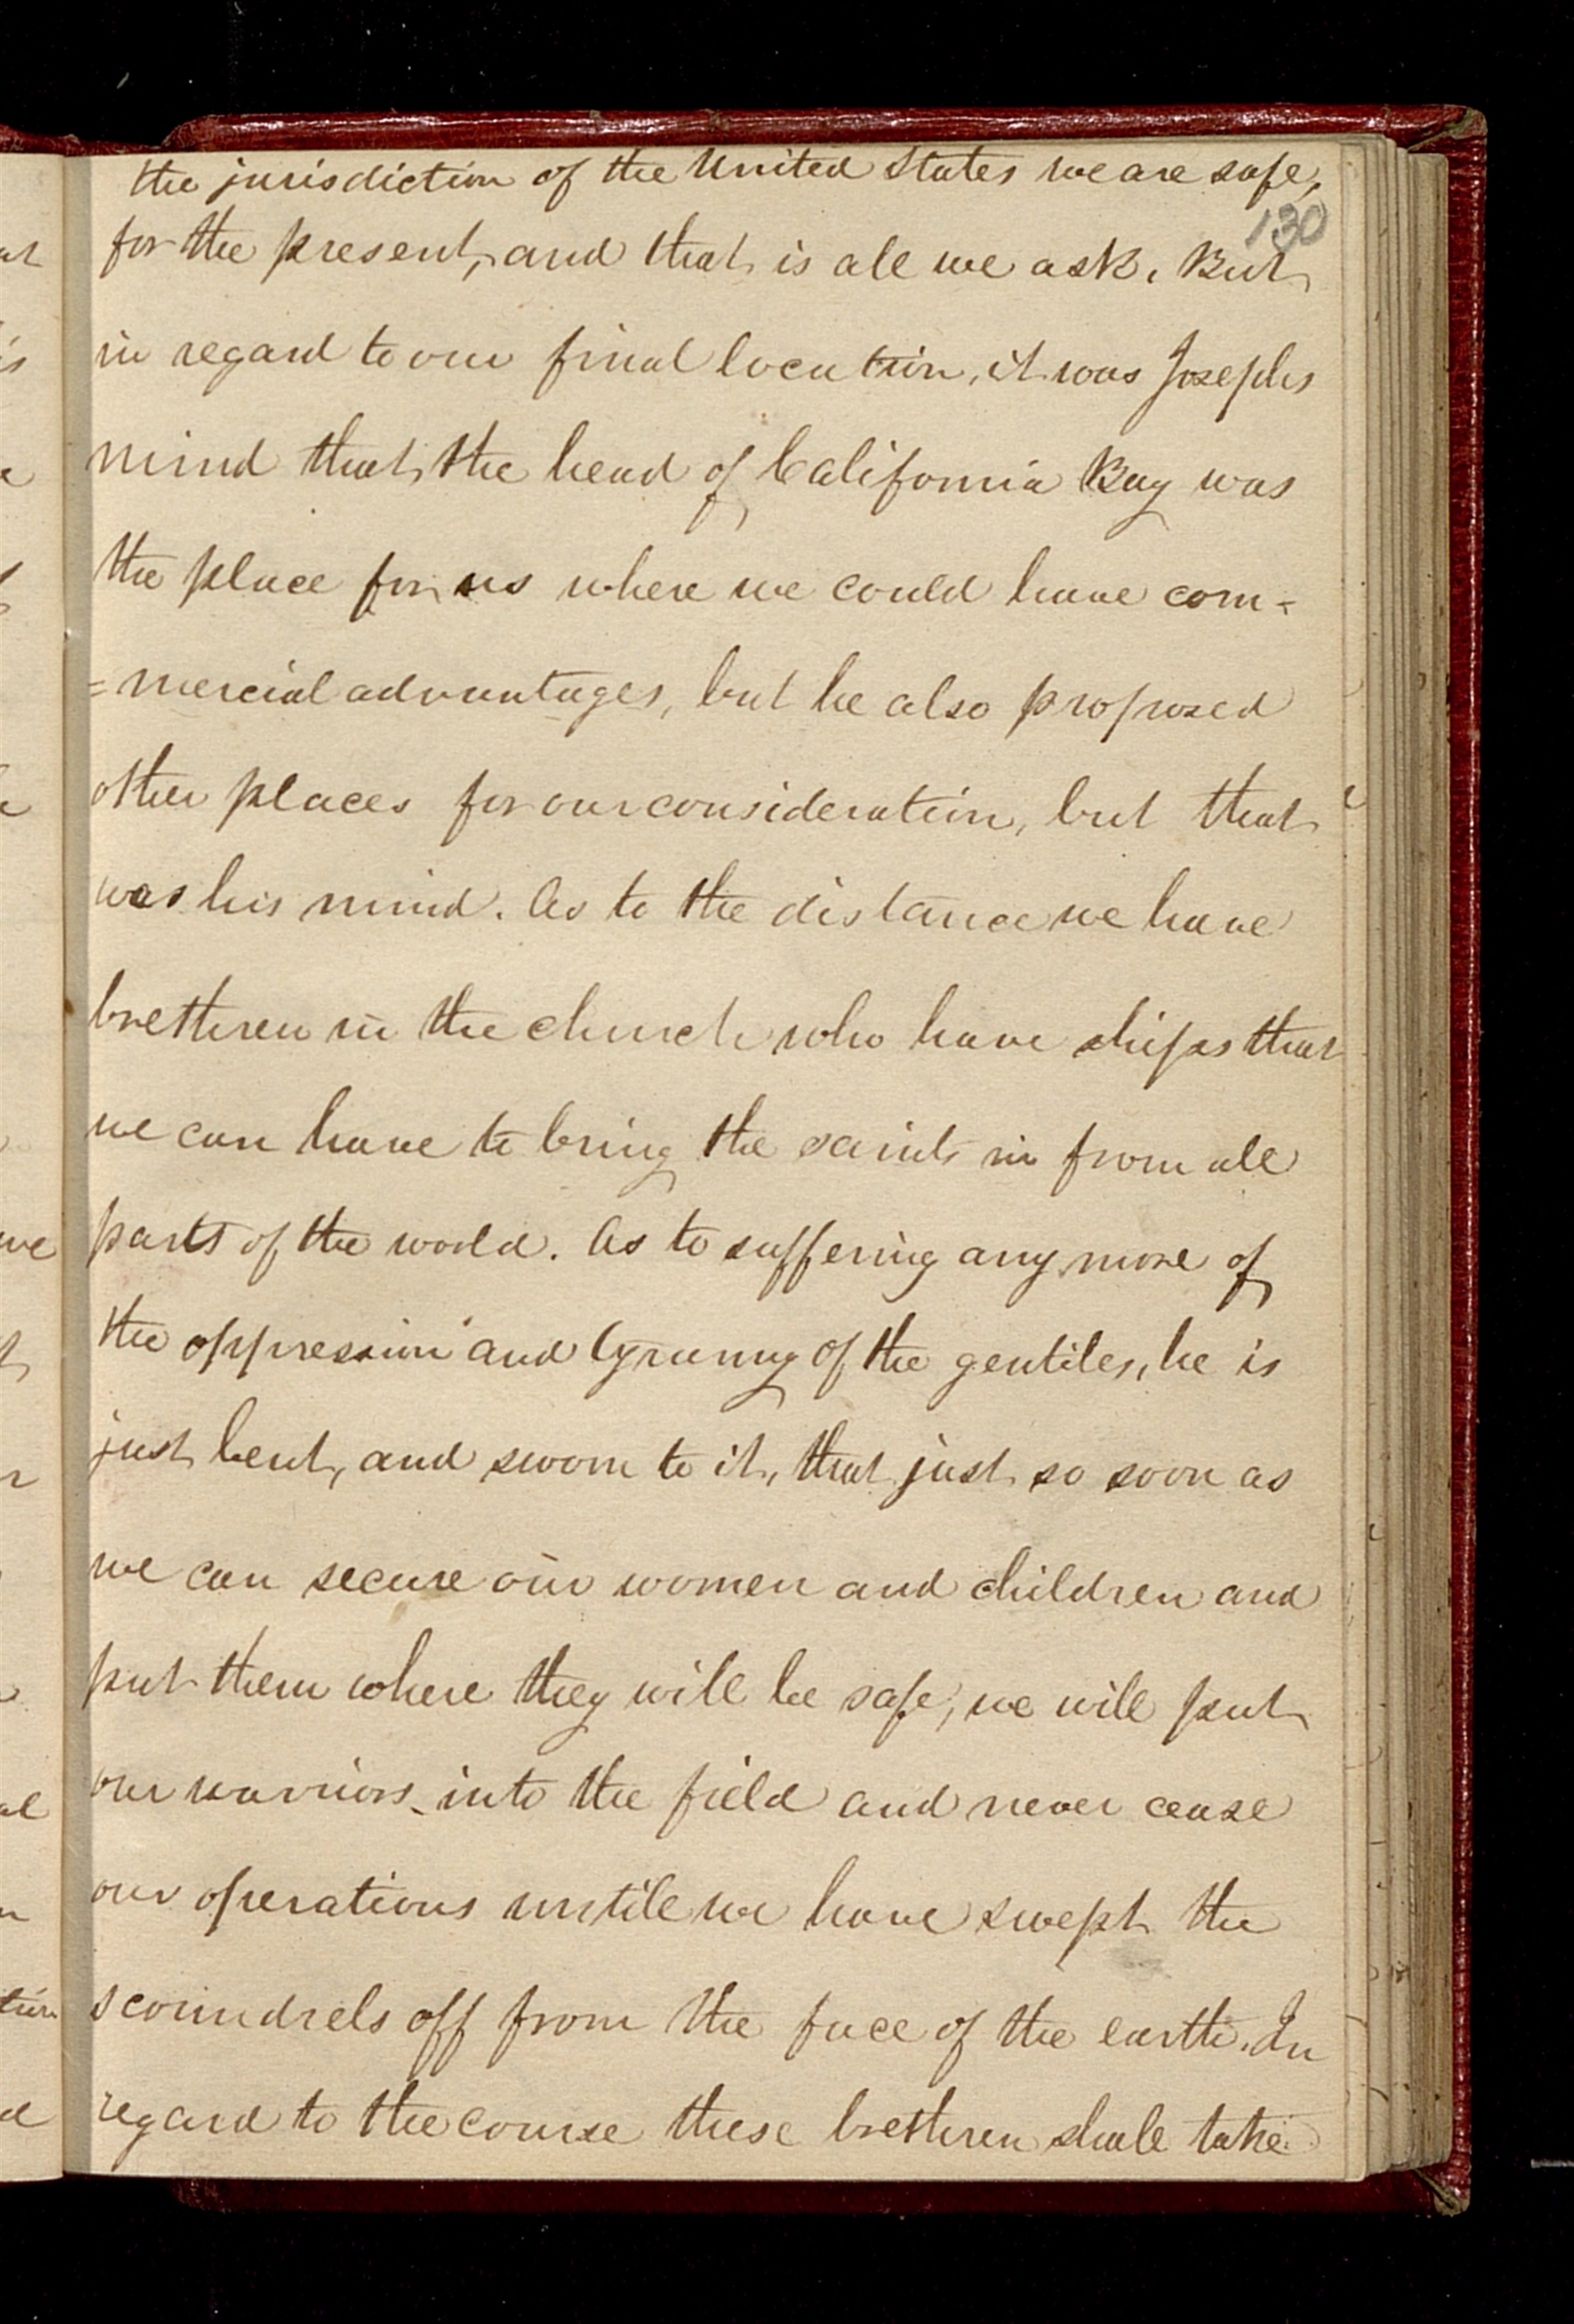 the jurisdiction of the United States we are safe,
130
for the present, and that is all we ask. But
in regard to our final location, it was Josephs
mind that the head of California Bay was
the place for us where we could have com=
=mercial advantages, but he also proposed
other places for our consideration, but that
was his mind. As to the distance we have
brethren in the church who have ships that
we can have to bring the saints in from all
parts of the world. As to suffering any more of
the oppression and tyranny of the gentiles, he is
just bent, and sworn to it, that just so soon as
we can secure our women and children and
put them where they will be safe, we will put
our warriors into the field and never cease
our operations untill we have swept the
scoundrels off from the face of the earth. In
regard to the course these brethren shall take